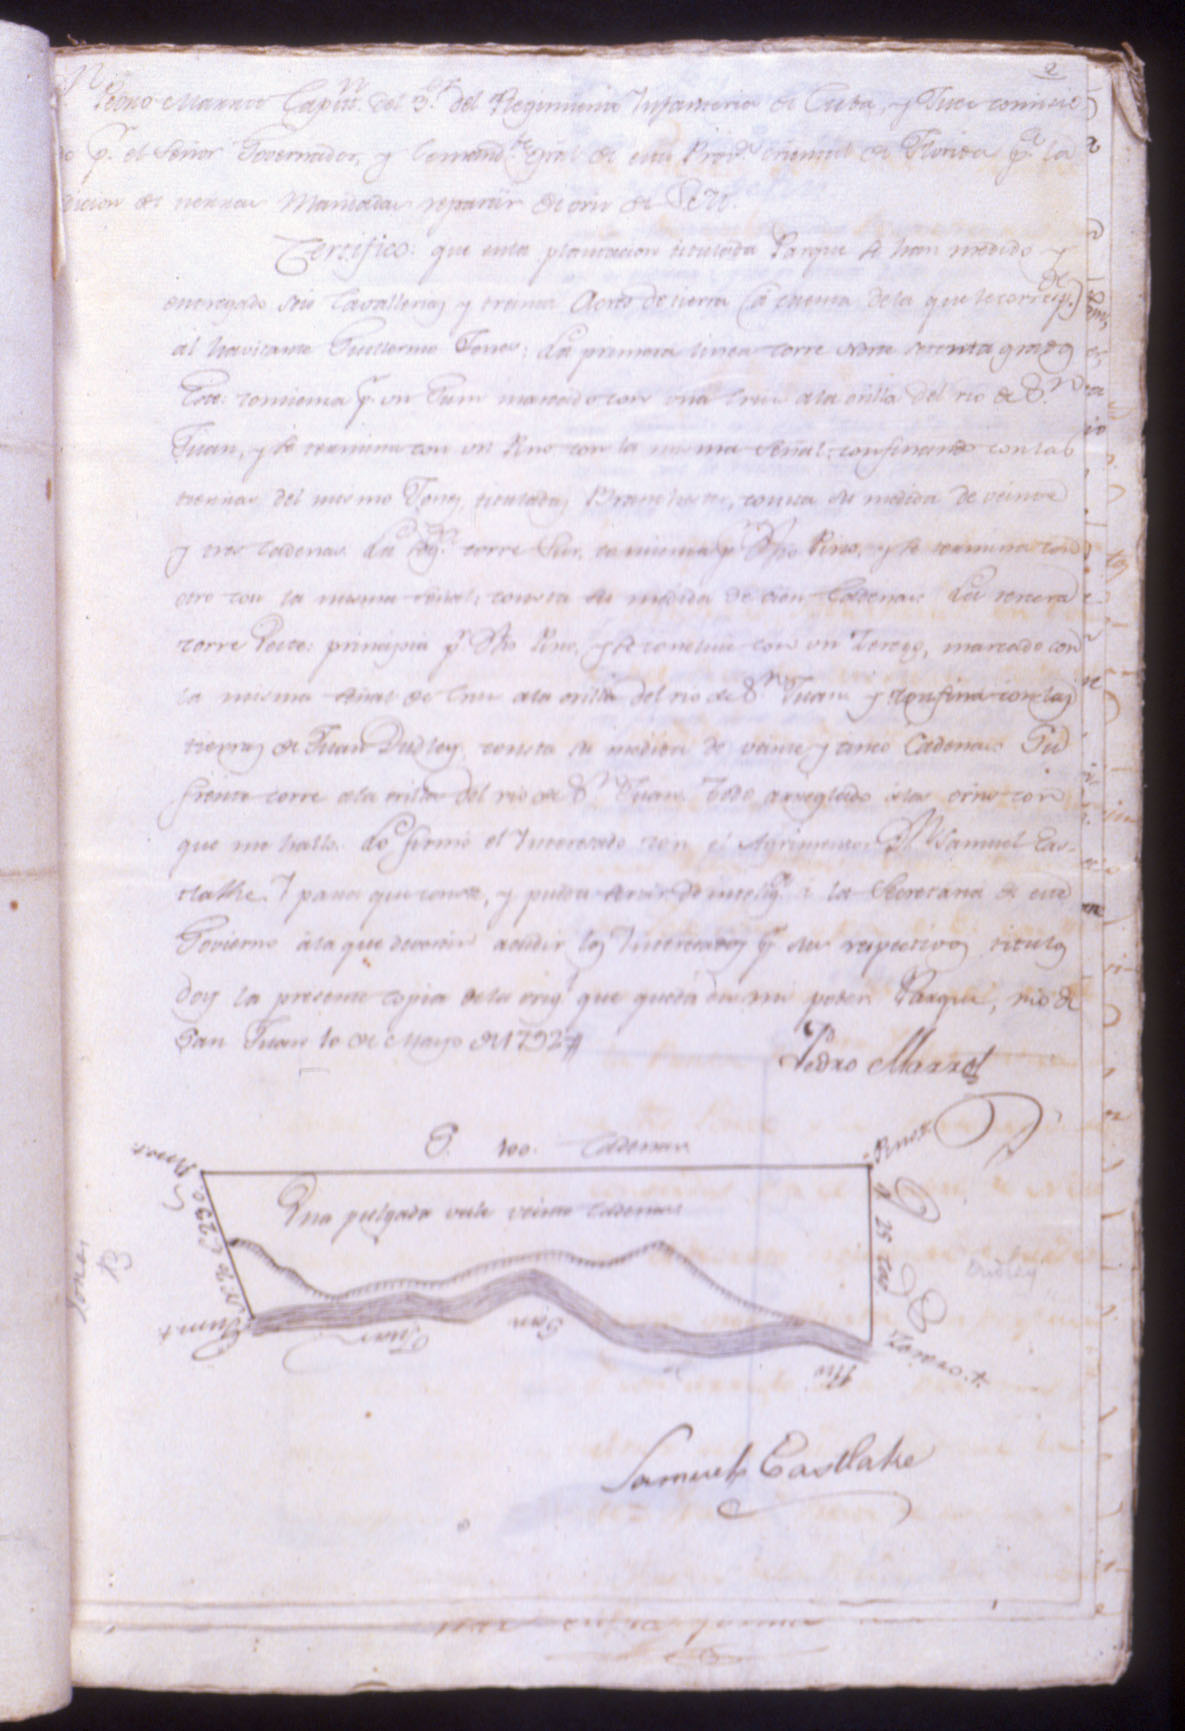 2
Pedro Marrot Capitn. del 3º. del Regimiento Infanteria de Cuba, y Juez comisio
pr. el Señor Governador, y Comandte. gral de esta Prova. oriental de Florida pa. la
dicion de tierras Mandadas repartir de orn de S. M.
Certifico: que esta plantacion titulada Parque se han medido y
entregado seis Cavallerias y treinta Acres de tierra (a cuenta de la que le corresp.de)
al havitante Guillermo Jones; La primera linea corre Norte setenta grados
Este: comienza pr. un Gum marcado con una Cruz a la orilla del rio de Sn.
Juan, y se termina con un Pino con la misma señal: confinando con las
tierras del mismo Jones, tituladas, consta su medida de veinte
y tres Cadenas. La segda. corre Sur, comienza pr. dho Pino, y se termina con
otro con la misma señal; consta su medida de cien Cadenas. La tercera
corre Oeste: principia pr. dho Pino, y se concluie con un, marcado con
la misma señal de Cruz a la orilla del rio de Sn. Juan y confina con las
tierras de Juan Dudley, consta su medida de veinte y cinco Cadenas. Su
frente corre a la orilla del rio de Sn. Juan. Todo arreglado a las orns con
que me hallo. Lo firmó el Interesado con el Agrimensor Dn. Samuel Eas-
tlake. Y para que conste, y pueda servir de inteliga. a la Secretaria de este
Govierno a la que deveran acudir los Interesados pr. sus respectivos titulos
doy la presente copia de la origl que queda en mi poder. Parque, rio de
San Juan 10 de Mayo de 1792
Pedro Marrot
S. 100. Cadenas
Pino +
Pino +
Una pulgada vale veinte Cadenas
N. 70 E. 23
25 Cas
Jones
B
Dudley
Gum +
Juan
San
Rio
Samuel Eastlake